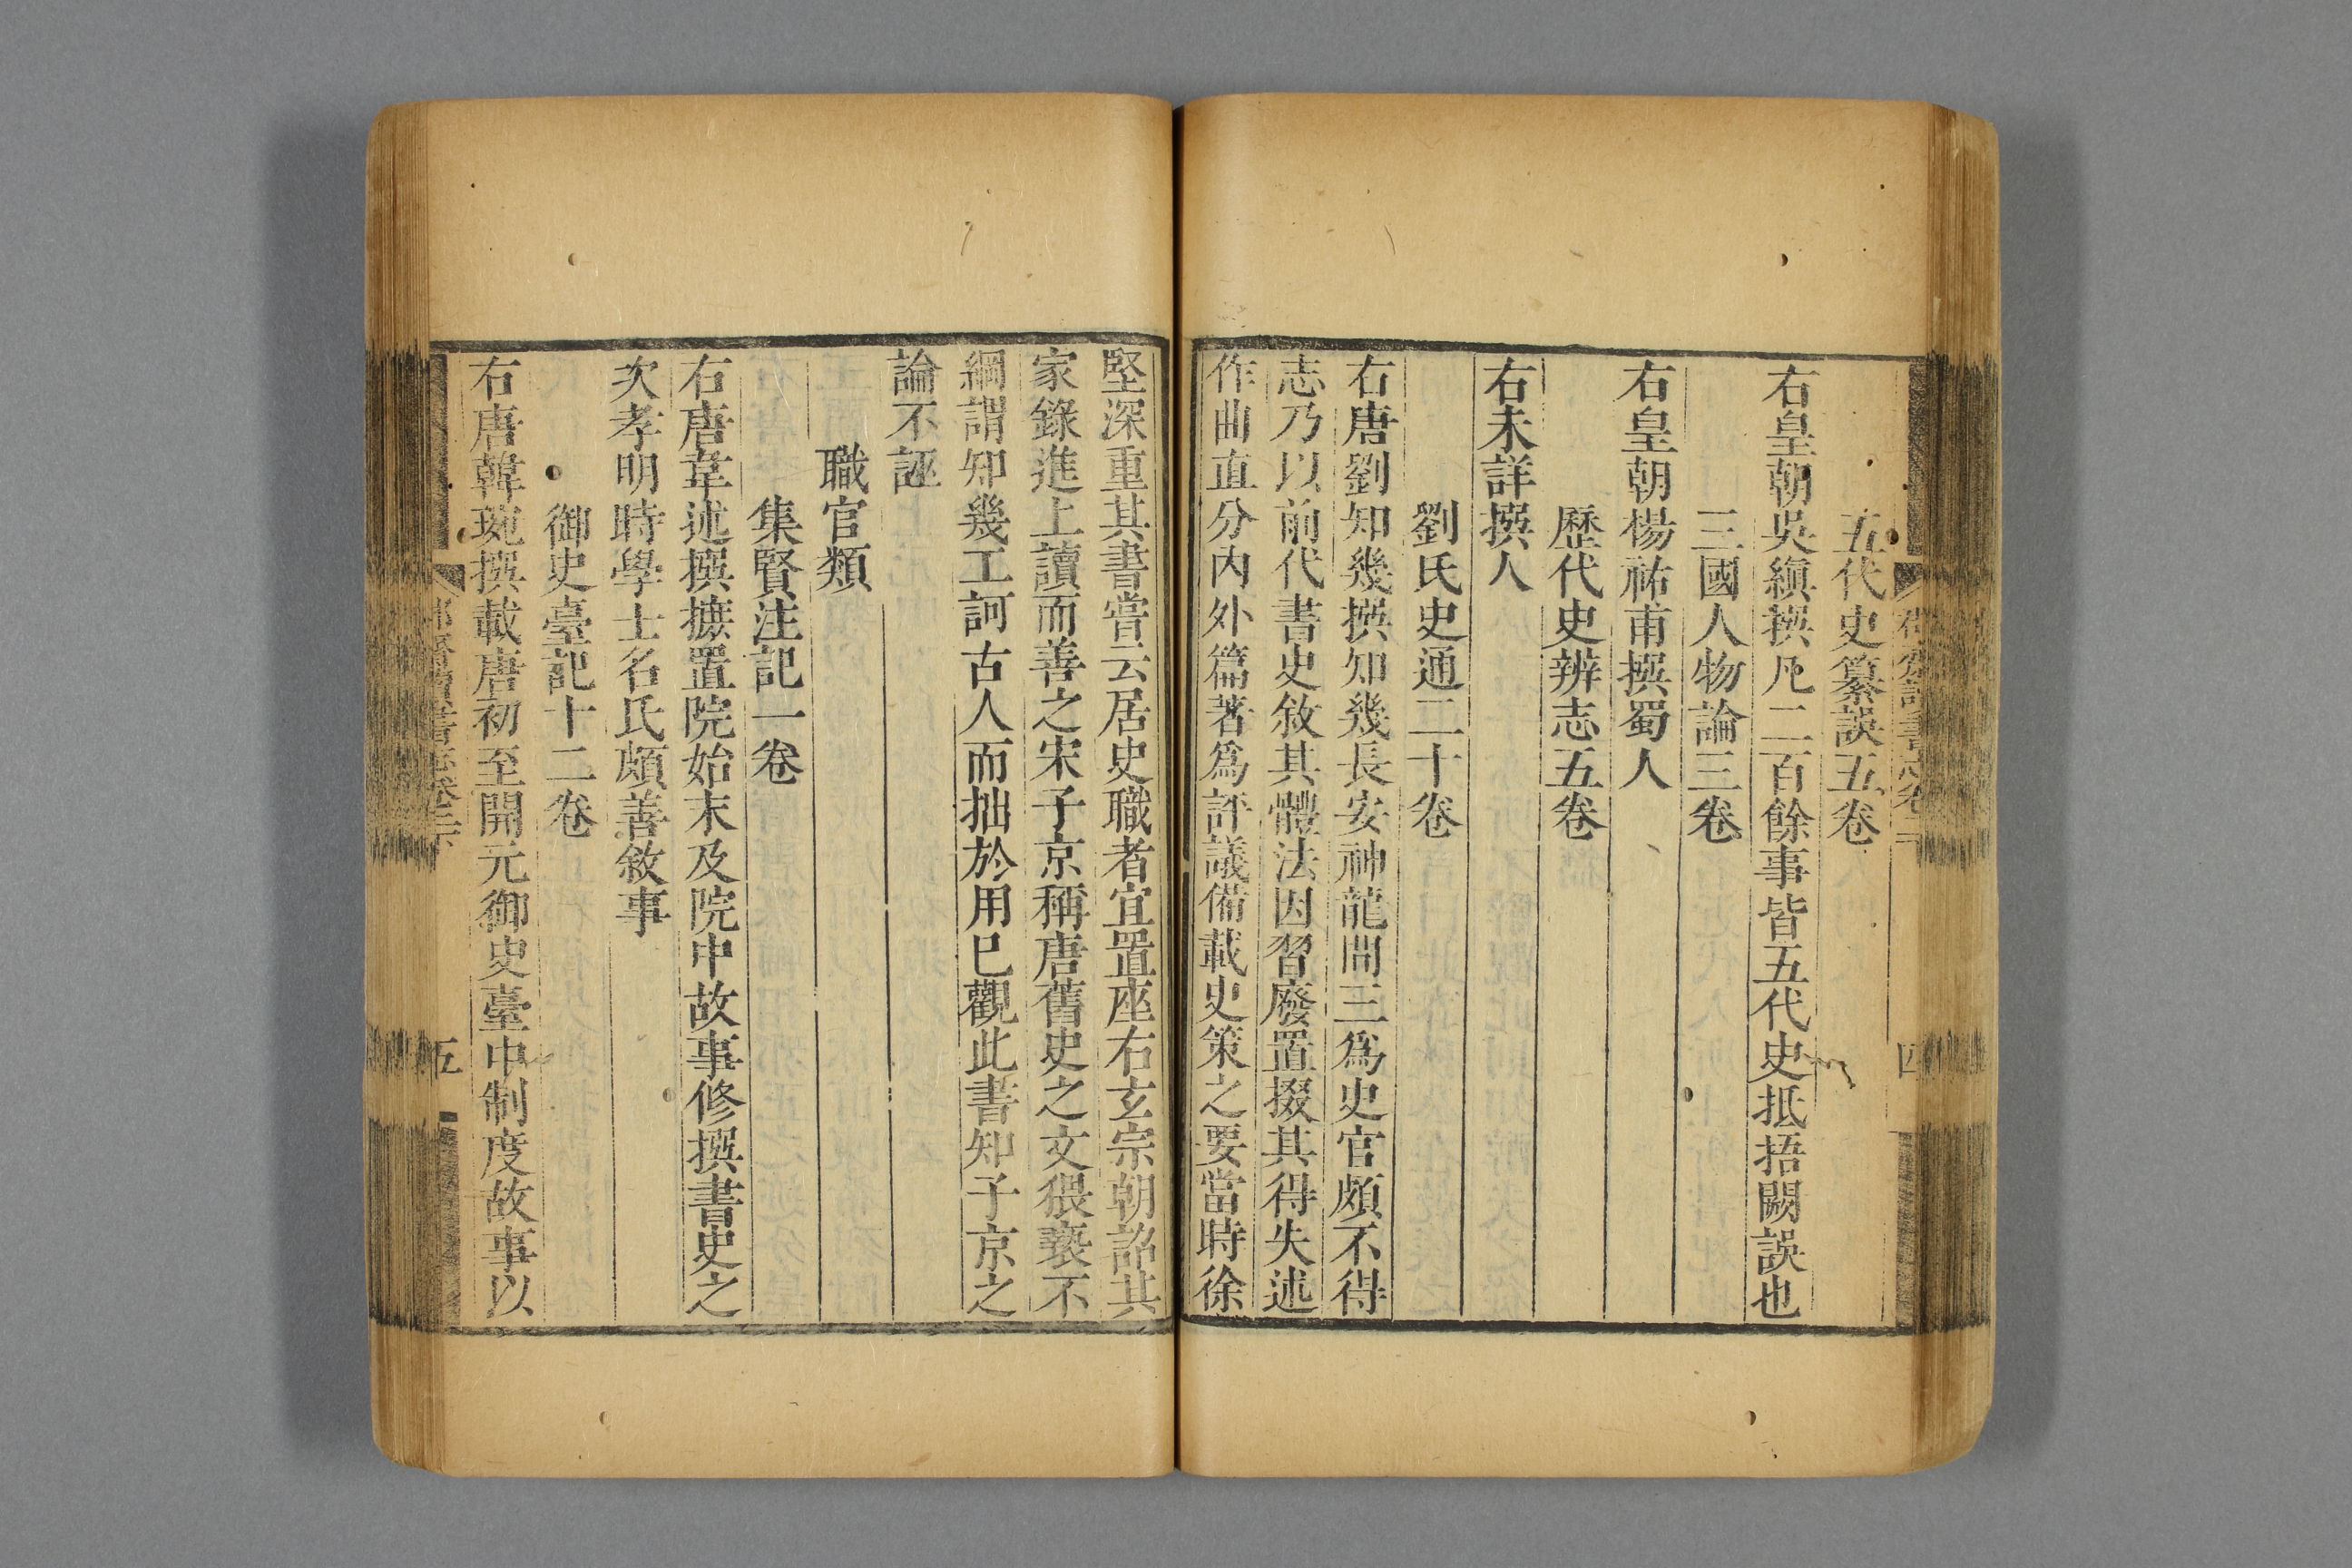 五代史纂誤五卷
右皇朝吳縝撰凡二百餘事皆五代史抵捂闕誤也
三國人物論三卷
右皇朝楊祐甫撰蜀人
歷代史辨志五卷
右未詳撰人
劉氏史通二十卷
右唐劉知幾撰知幾長安神龍間三爲史官頗不得
志乃以前代書史敘其體法因習廢置掇其得失述
作曲直分內外篇著爲評議備載史策之要當時徐
堅深重其書嘗云居史職者宜置座右玄宗朝詔其
家錄進上讀而善之宋子京稱唐舊史之文猥䙝不
綱謂知幾工訶古人而拙於用巳觀此書知子京之
論不誣
職官類
集賢注記一卷
右唐韋述撰摭置院始末及院中故事修撰書史之
次孝明時學士名氏頗善敘事
御史臺記十二卷
右唐韓琬撰載唐初至開元御史臺中制度故事以
五